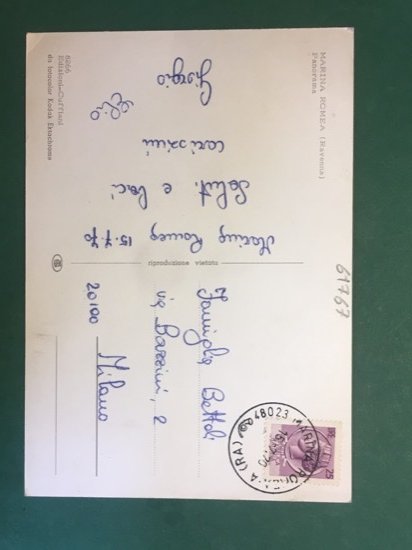 MARINA ROMEA (Ravenna)
Panorama
Marina Romea 15.7.70
Saluti e baci
carissimi
Giorgio
6266
Edizioni-Cuffiani
da fotocolor Kodak Ektachrome
riproduzione vietata
61767
48023 MARINA ROMEA (RA)
25
Famiglia Bettoli
via Bazzini, 2
20100 Milano